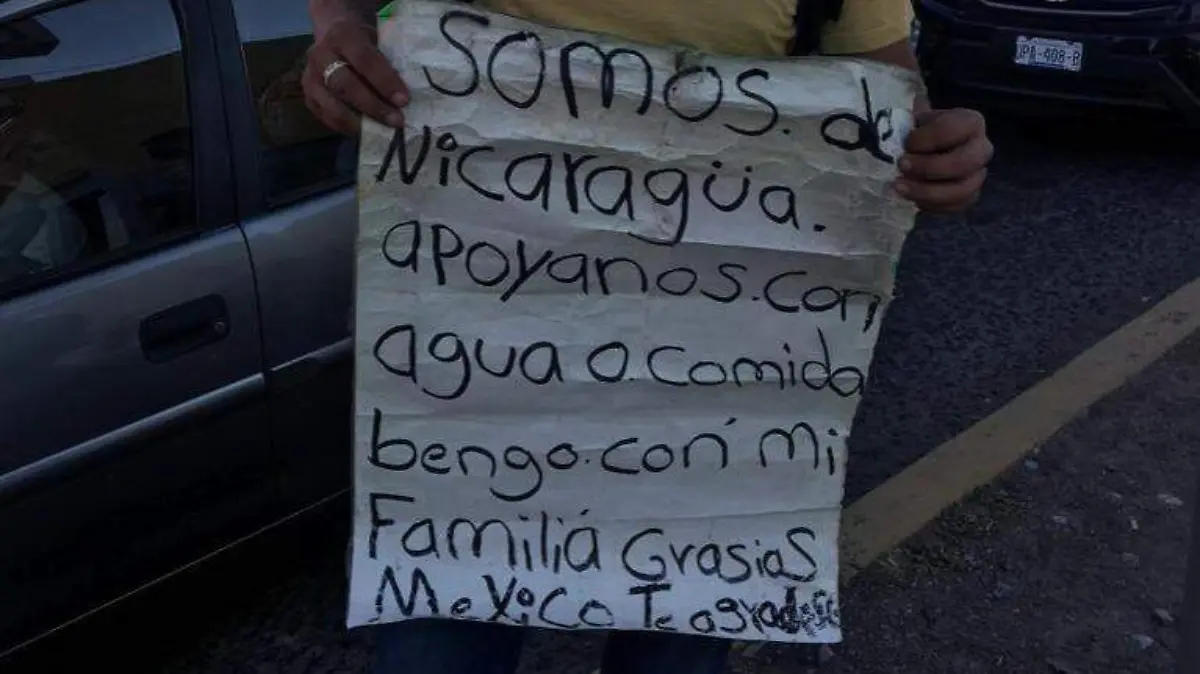 Somos. de
Nicaragüa.
apoyanos. con
agua o. comida
bengo. con mi
Familiá Grasias
Mexico Te